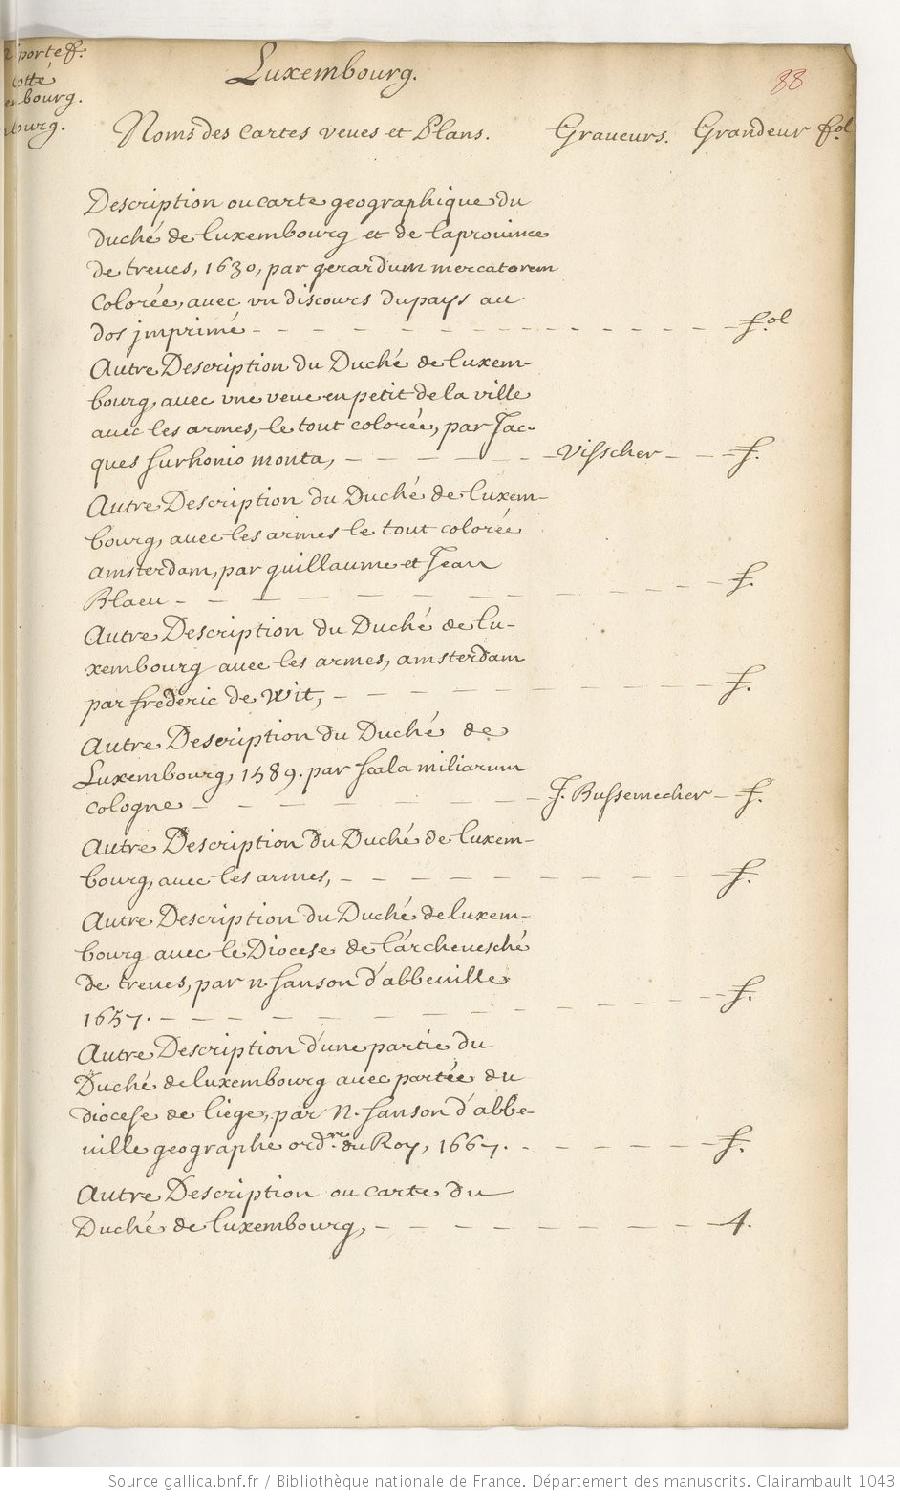 portef.
cotté
embourg.
bourg.
Luxembourg.
88
Noms des Cartes veues et Plans. Graveurs. Grandeur fol
Description ou carte geographique du
Duché de luxembourg et de la prouince
de treues, 1630, par gerardum mercatorem
Colorée, avec vn discours du pays au
dos jmprimé - - - - - - - - - - - - fol
Autre Description du Duché de luxem-
bourg, avec vne veue en petit de la ville
avec les armes, le tout colorée, par Jac-
ques surhonio monta, - - - - - Visscher - - f.
Autre Description du Duché de luxem-
bourg, avec les armes le tout colorée
amsterdam, par guillaume et Jean
Blaeu - - - - - - - - - - f.
Autre Description du Duché de lu-
xembourg avec les armes, amsterdam
par frederic de Wit, - - - - - - - - f.
Autre Description du Duché de
Luxembourg, 1589. par scala miliarum
Cologne - - - - - - - - J. Bussemecher - f.
Autre Description du Duché de luxem-
bourg, avec les armes, - - - - - - - - f.
Autre Description du Duché de luxem-
bourg avec le Diocese de l'archevesché
de treues, par n. sanson d'abbeuille
1657. - - - - - - - - - - - f.
Autre Description d'une partie du
Duché de luxembourg avec partée du
diocese de liege, par N. sanson d'abbe-
uille geographe ordre du Roy, 1667. - - - - - f.
Autre Description ou carte du
Duché de luxembourg, - - - - - - - 4.
Source gallica.bnf.fr / Bibliothèque nationale de France. Département des manuscrits. Clairambault 1043